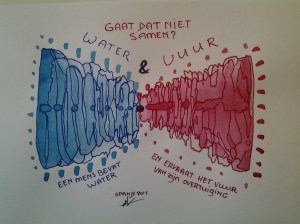 GAAT DAT NIET
SAMEN?
WATER
&
VUUR
EEN MENS BEVAT
WATER
EN ERVAART HET VUUR
VAN ZIJN OVERTUIGING